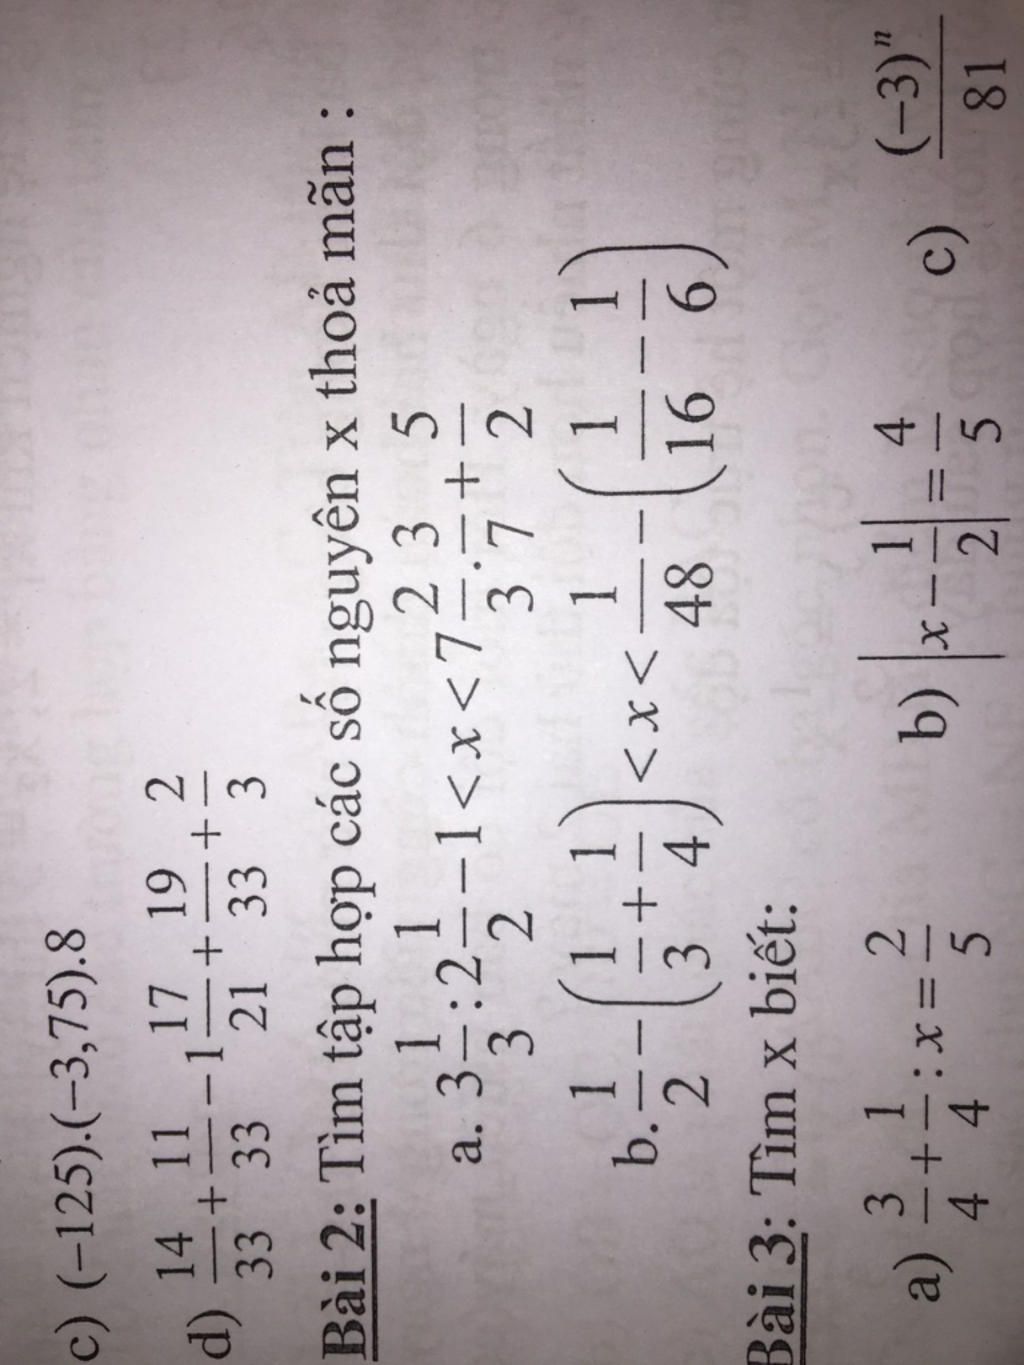 c) (−125).(−3,75).8
d) 14/33 + 11/33 − 1 17/21 + 19/33 + 2/3
Bài 2: Tìm tập hợp các số nguyên x thoả mãn :
a. 3 1/3 : 2 1/2 − 1 < x < 7 2/3 . 3/7 + 5/2
b. 1/2 − (1/3 + 1/4) < x < 1/48 − (1/16 − 1/6)
Bài 3: Tìm x biết:
a) 3/4 + 1/4 : x = 2/5 b) |x − 1/2| = 4/5 c) (−3)ⁿ/81